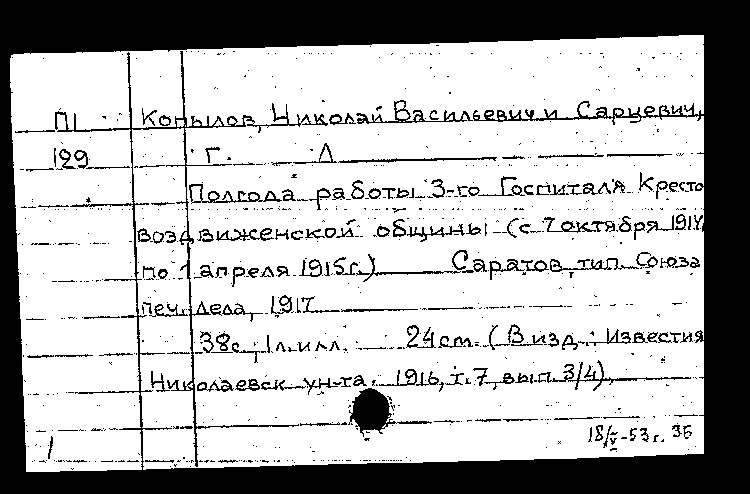 П1 Копылов, Николай Васильевич и Сарцевич,
129 Г. Л
Полгода работы 3-го Госпиталя Кресто
воздвиженской общины (с 7 октября 1914
по 1 апреля 1915г.) Саратов, тип. Союза
печ. дела, 1917
38с., 1л.илл. 24см. (В изд.: Известия
Николаевск. ун-та. 1916, т.7, вып. 3/4).
18/V-53г. ЗБ